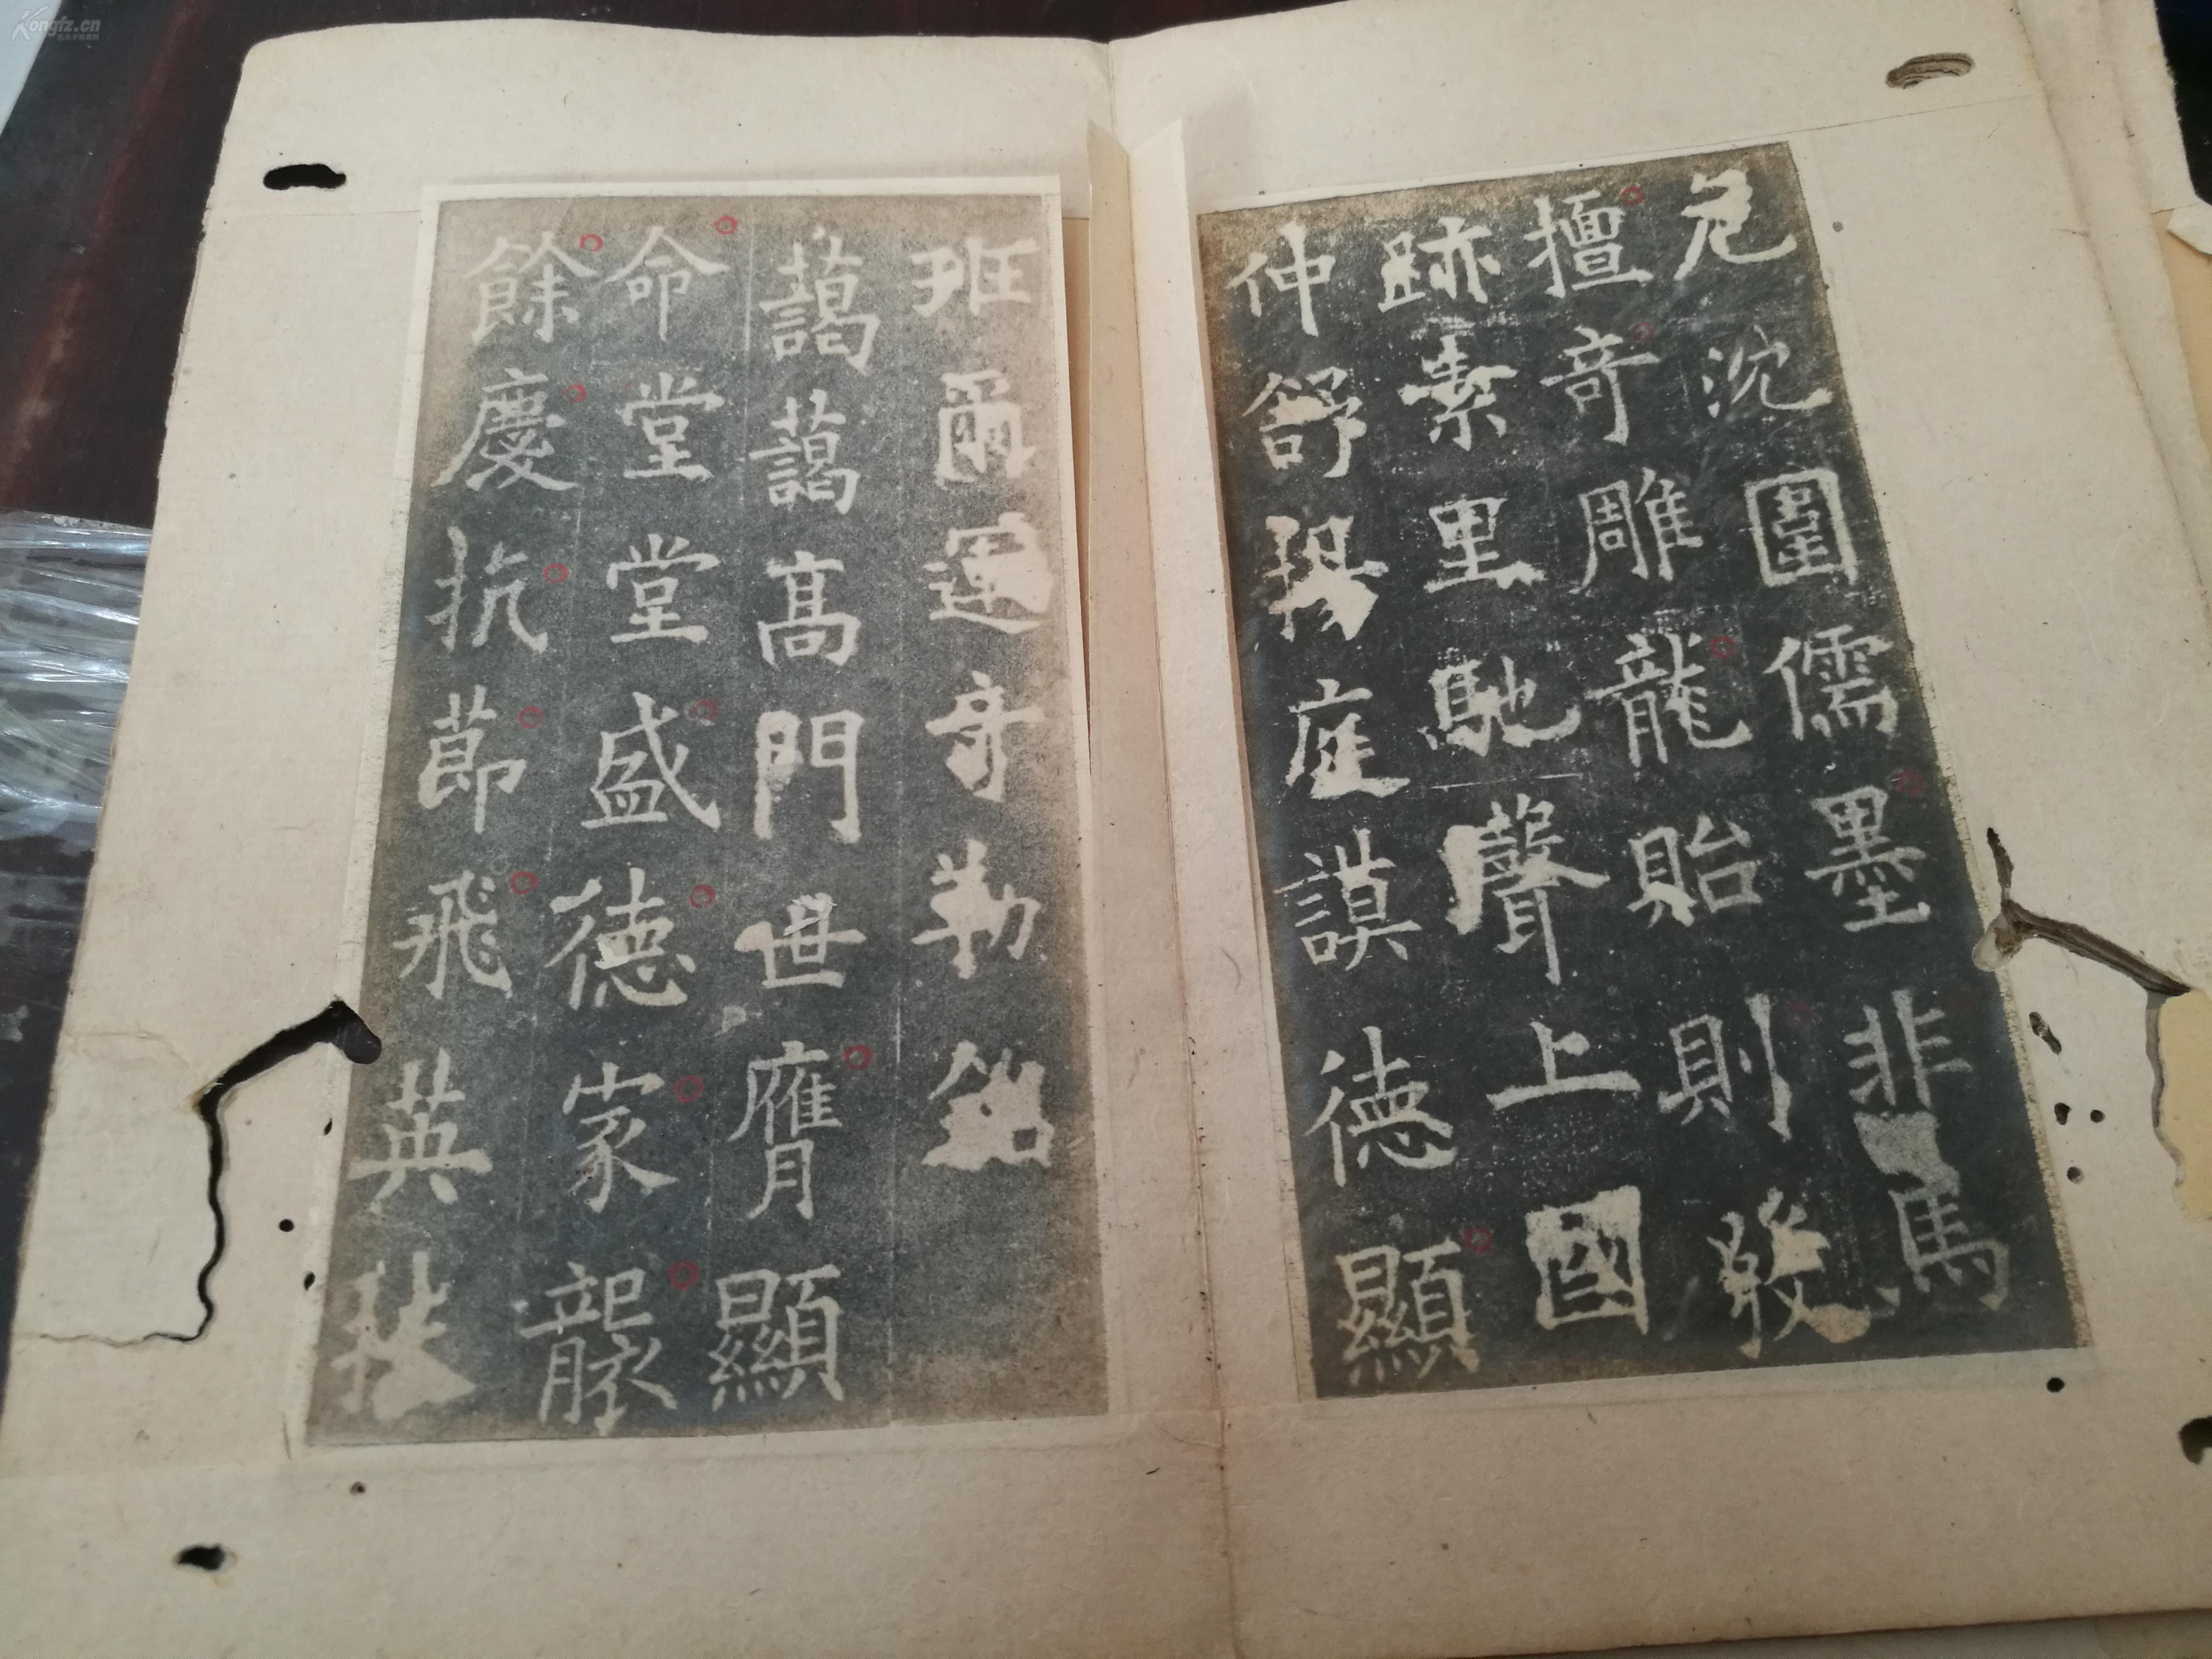 危沈圍儒墨非馬
擅奇雕龍貽則
跡素里馳聲上國
仲舒揚庭謨德顯
班爾運奇勒銘
藹藹高門世膺顯
命堂堂盛德家襲
餘慶抗節飛英
Kongfz.cn